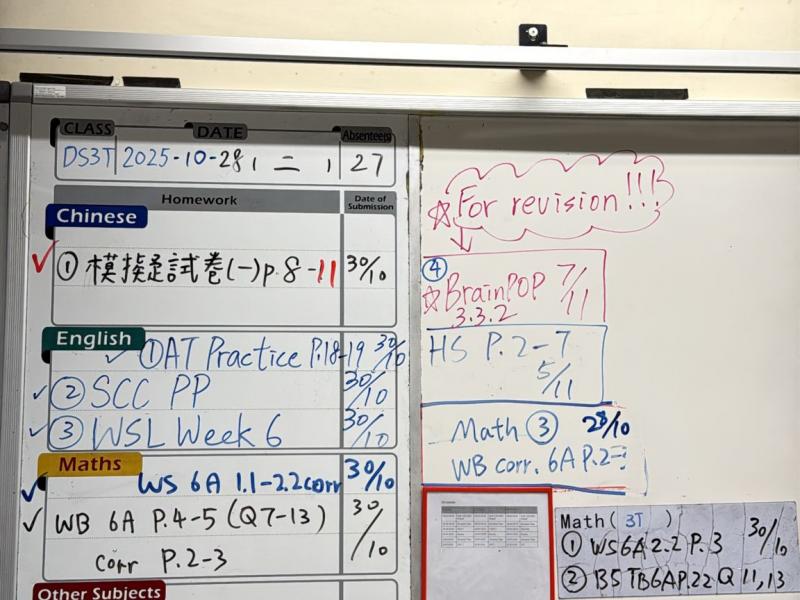 CLASS DATE Absentee(s)
DS3T 2025-10-28, 二, 27
Homework Date of Submission
Chinese
① 模擬試卷(一)p.8-11 30/10
English
① AT Practice P.18-19 30/10
② SCC PP 30/10
③ WSL Week 6 30/10
Maths
WS 6A 1.1-2.2 corr 30/10
WB 6A P.4-5 (Q7-13) 30/10
corr P.2-3
Other Subjects
☆ For revision!!!
④
☆ BrainPOP 7/11
3.3.2
HS P.2-7
5/11
Math ③ 28/10
WB corr. 6A P.2-
Math( 3T )
① WS6A 2.2 P.3 30/10
② B5 TB6A P.22 Q 11,13